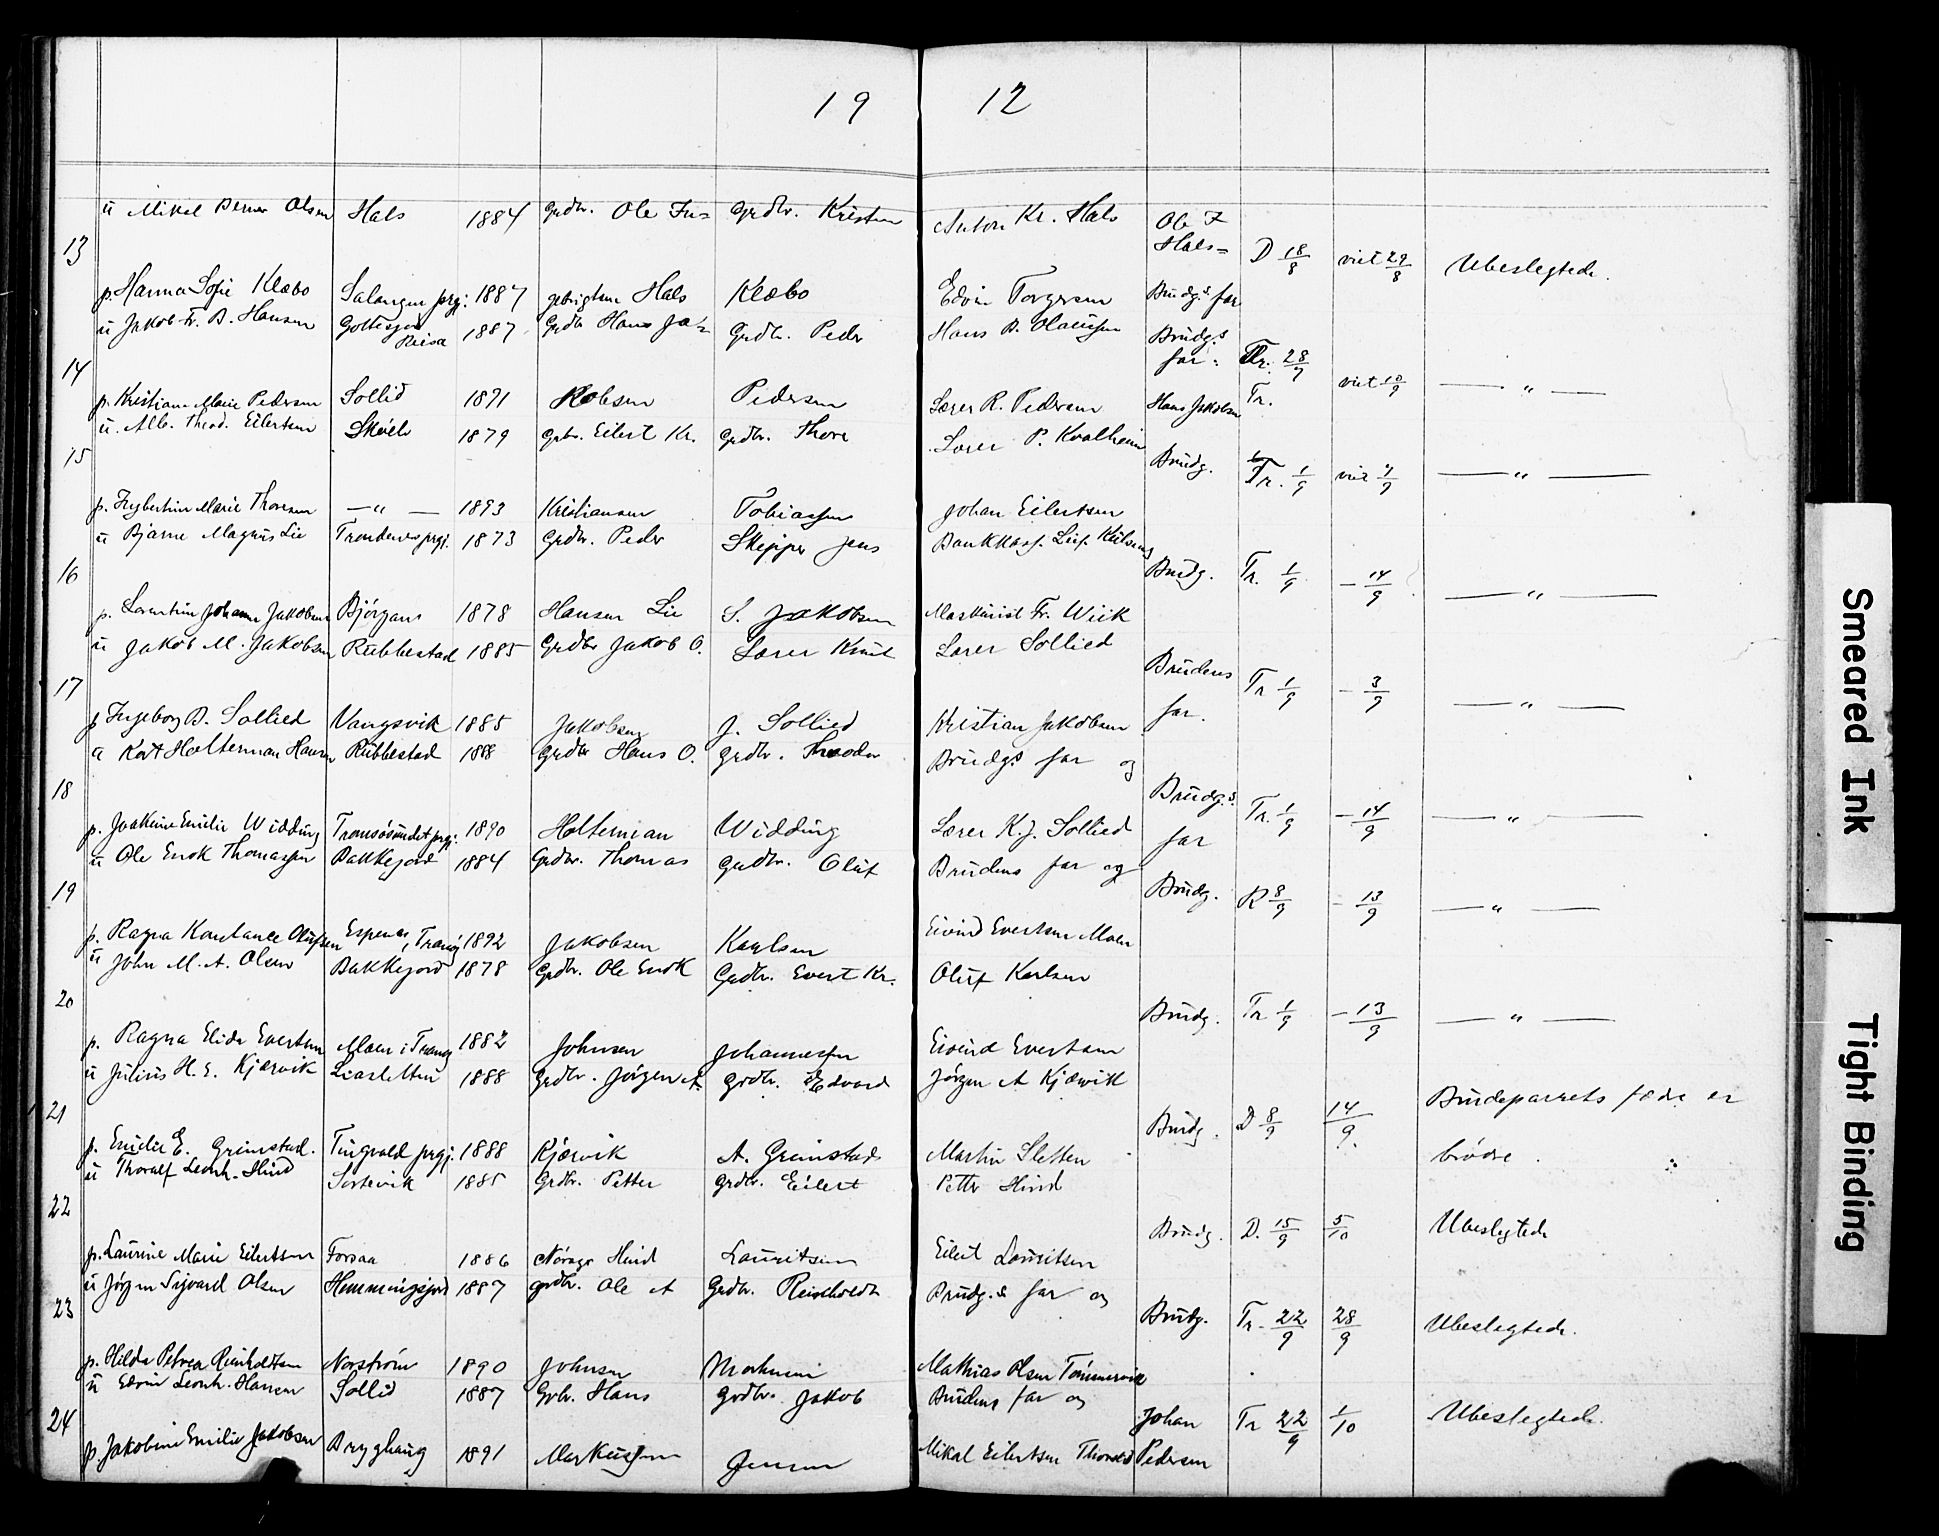 19 12
u Mikal Berner Olsen Hals 1884 Grdbr. Ole In= Grdbr. Kristen Anton Kr. Hals Ole I
13 Hals= D 18/8 viet 29/8 Ubeslegtede.
p. Hanna Sofie Klæbo Salangen prgj: 1887 gebrigtsen Hals Klæbo Edvin Torgersen Brudgs. far
u Jakob Fr. B. Hansen Gottesjord Reisa 1887 Grdbr Hans Ja= Grdbr. Peder Hans B. Olaussen Brudgs
14 far. Tr. 28/7 viet 10/9 — " —
p. Kristiane Marie Pedersen Sollid 1891 Kobsen Pedersen Lærer R. Pedersen Hans Jakobsen Tr.
u. Alb. Theod. Eilertsen Skøelv 1879 Grbr. Eilert Kr. Grdbr. Thore Lærer P. Kvalheim
15 Brudg. Tr. 1/9 viet 7/9 — " —
p. Ingbertine Marie Thoresen — " — 1893 Kristiansen Tobiassen Johan Eilertsen
u Bjarne Magnus Lie Trondenes prgj. 1873 Grdbr. Peder Skipper Jens Bankkass. Leif
16 Brudg. Tr. 1/9 — 14/9 — " —
p. Lorentine Johanne Jakobsen Bjørgans 1878 Hansen Lie S. Jakobsen Maskinist Fr. Wiik
u Jakob M. Jakobsen Rubbestad 1885 Grdbr Jakob O. Lærer Knut Lærer Sollied
17 Brudens Tr 1/9 — 3/9 — " —
p Ingeborg B. Sollied Vangsvik 1885 Jakobsen J. Sollied Kristian Jakobsen far.
u Kort Holterman Hansen Rubbestad 1888 Grdbr Hans O. Grdbr. Theodor Brudgs far og
18 Brudg.s. Tr. 1/9 — 14/9 — " —
p. Joakine Emilie Widding Tromsøsundet prgj. 1890 Holterman Widding Lærer K. J. Sollied far
u Ole Enok Thomassen Bakkejord 1884 Grdbr. Thomas Grdbr. Oluf Brudens far og
19 Brudg. R 8/9 — 13/9 — " —
p. Ragna Konstance Olufsen Espenes, Tranøy 1892 Jakobsen Karlsen Eivind Evertsen Moen
u John M. A. Olsen Bakkejord 1878 Grdbr. Ole Enok Grdbr. Evert Kr. Oluf Karlsen
20 Brudg. Tr 1/9 — 13/9 — " —
p. Ragna Elida Evertsen Moen i Tranøy 1882 Johnsen Johannessen Eivind Evertsen
u Julius H. E. Kjærvik Liasletten 1888 Grdbr. Jørgen A. Grdbr. Edvard Jørgen A Kjærvik
21 Brudg. D 8/9 14/9. Brudeparrets fædre er
p. Emilie E. Grimstad. Tingvold prgj. 1888 Kjærvik A. Grimstad Martin Sletten brødre.
u Thoralf Leonh. Hind Sortevik 1885 Grdbr. Petter Grdbr. Eilert Petter Hind
22 Brudg. D. 15/9 5/10 Ubeslegtede
p. Laurine Marie Eilertsen Forsaa 1886 Nørage Hind Lauritsen Eilert Lauritsen
u Jørgen Sigvard Olsen Hemmingsjord 1887 Grdbr. Ole A Grdbr. Reinholdt Brudg.s far og
23 Brudg. Tr. 22/9 28/9 Ubeslegtede.
p. Hilda Petrea Reinholdtsen Norstrøm 1890 Johnsen Morkmein Mathias Olsen Tømmervik
u Edvin Leonh. Hansen Sollid 1887 Grbr. Hans Grdbr. Jakob Brudens far og
24 Johan Tr 22/9 1/10 Ubeslegtede.
p. Jakobine Emilie Jakobsen Brygghaug 1891 Markussen Jensen Mikal Eilertsen Thorvald Pedersen
Smeared Ink
Tight Binding